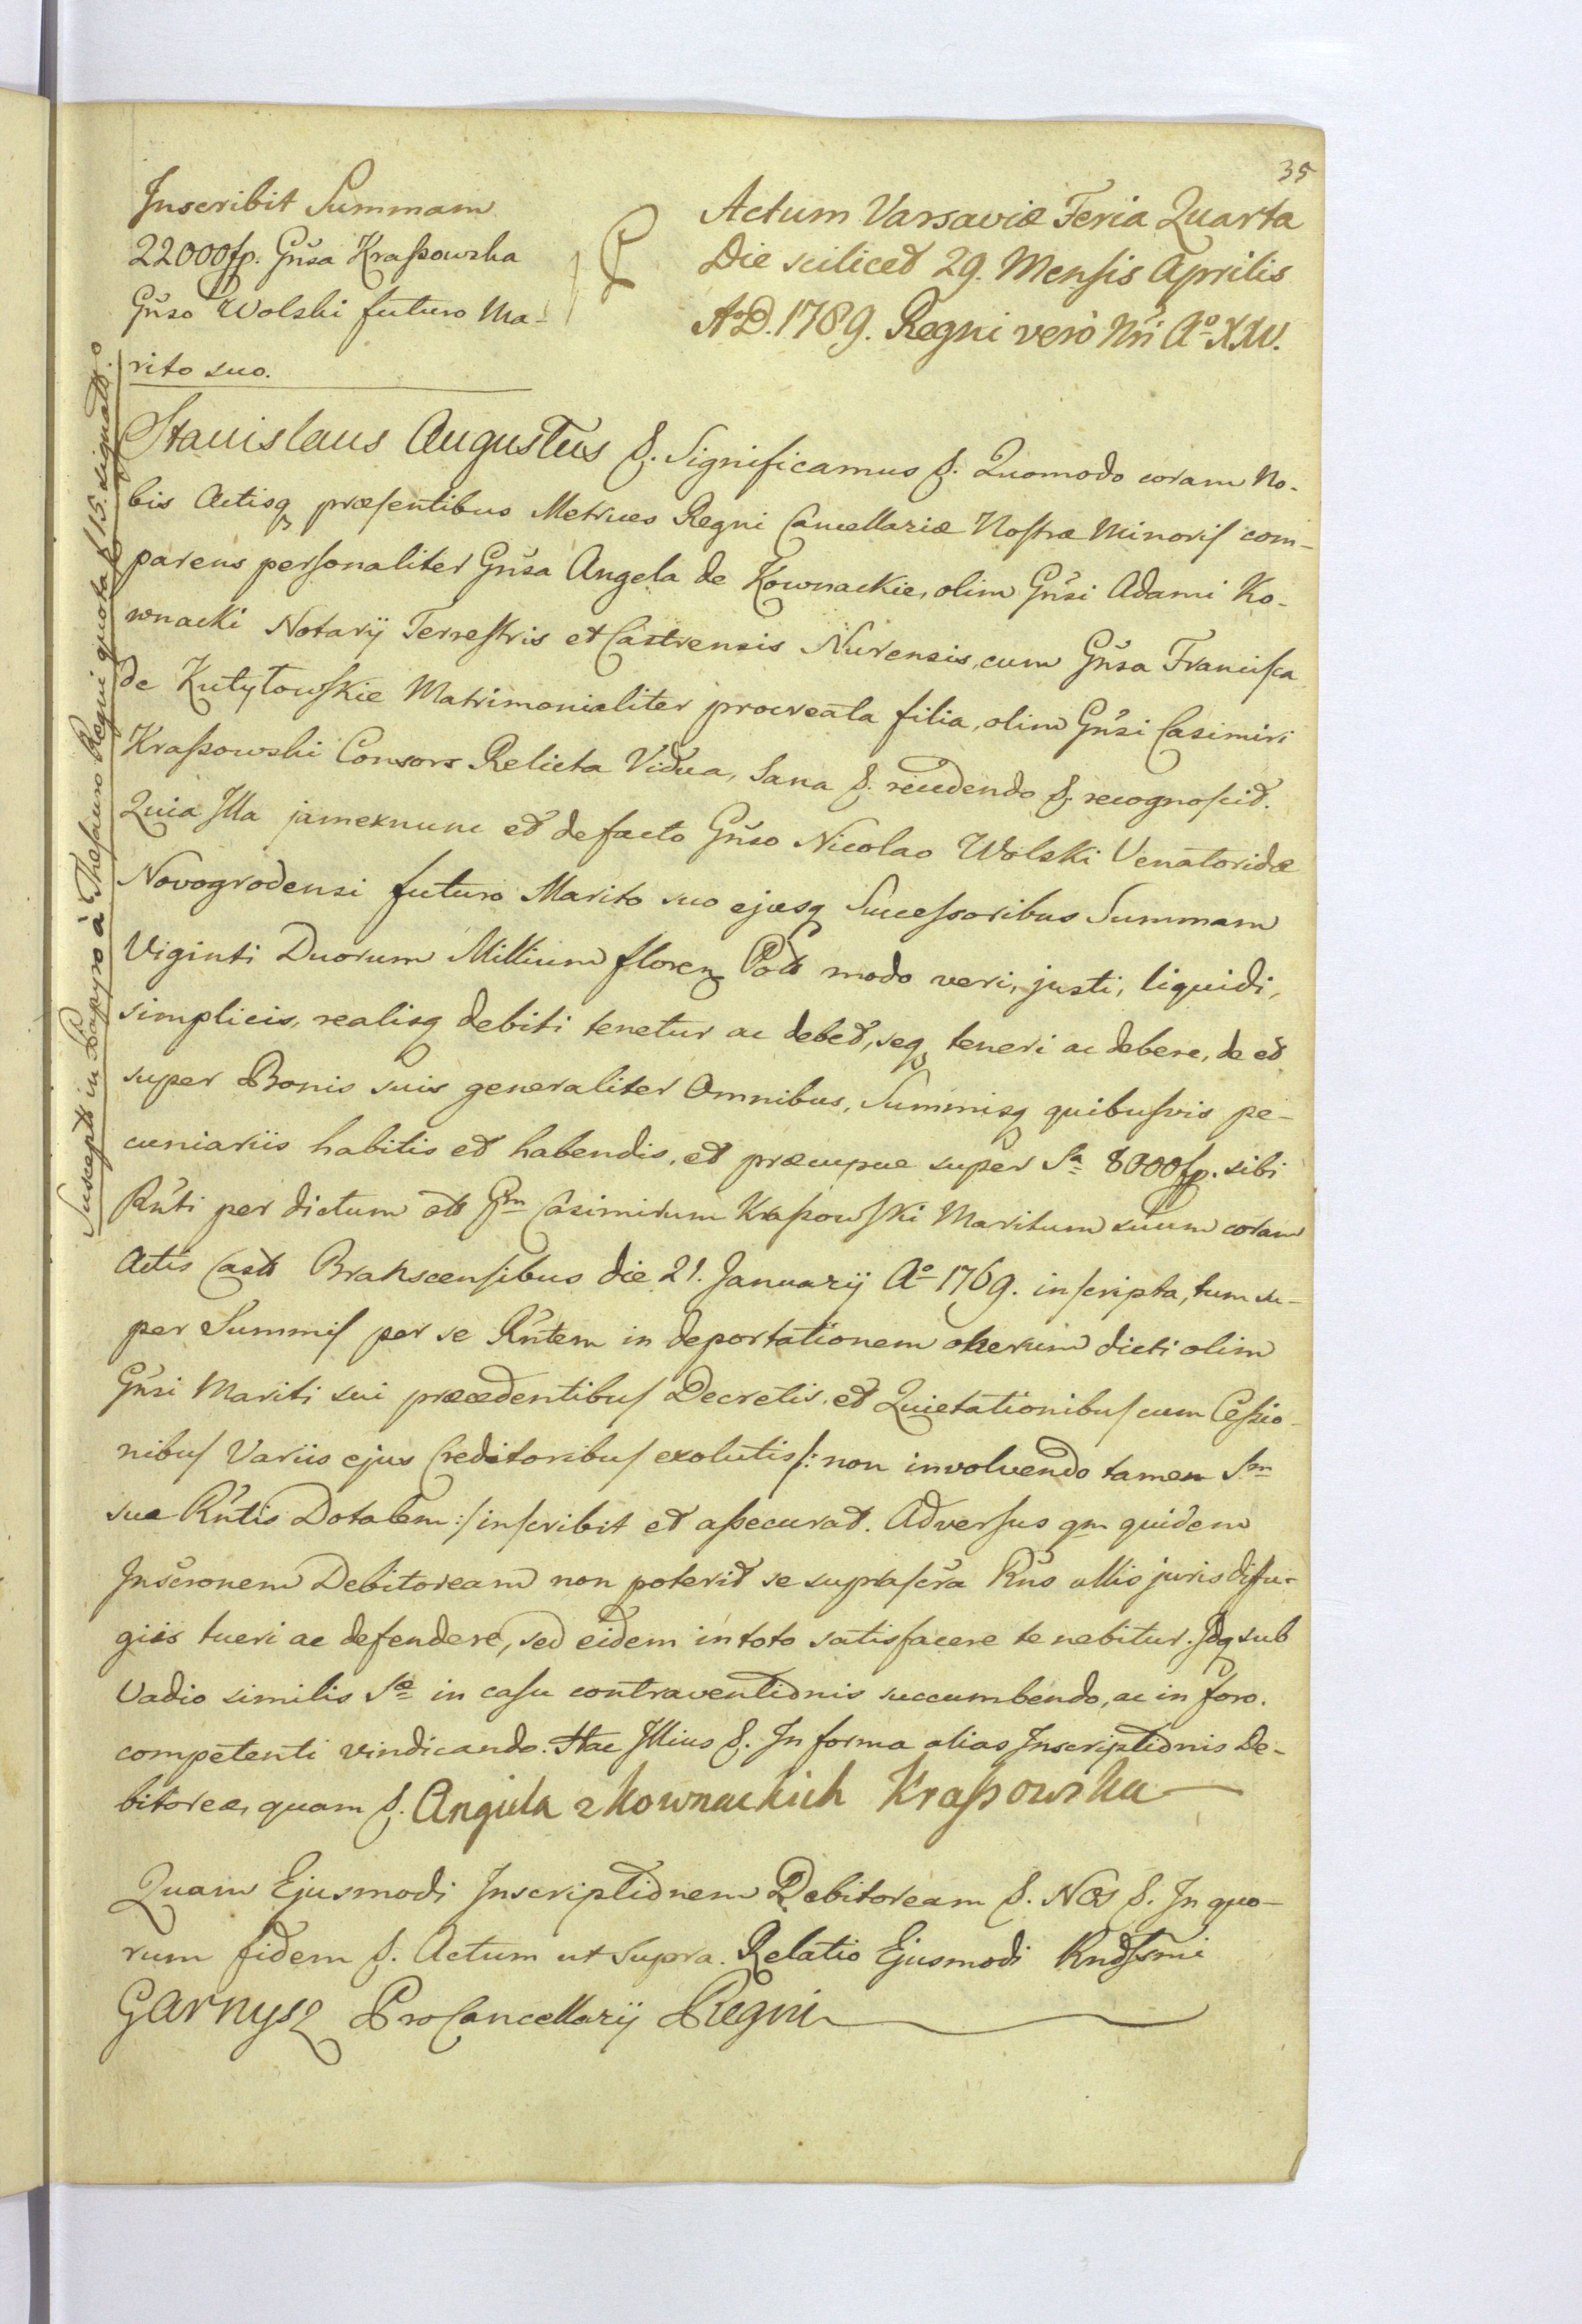 35
Inscribit Summam
22000 fp. Gnsa Kraßowska
Gnso Wolski futuro Ma-
rito suo.
Actum Varsaviæ Feria Quarta
Die scilicet 29. Mensis Aprilis
A.D. 1789. Regni verò Nri Aº XXV.
Suscepta in Papyro à Thesauro Regni quota f 15. signatto
Stanislaus Augustus &. Significamus &. Quomodo coram No-
bis Actisq præsentibus Metrices Regni Cancellariæ Nostræ Minoris com-
parens personaliter Gnsa Angela de Kownackie, olim Gnsi Adami Ko-
wnacki Notarij Terrestris et Castrensis Nurensis, cum Gnsa Francisca
de Kutyłowskie Matrimonialiter procreata filia, olim Gnsi Casimiri
Kraßowski Consors Relicta Vidua, Sana &. recedendo &. recognoscit.
Quia Illa jam exnunc et defacto Gnso Nicolao Wolski Venatoridæ
Novogrodensi futuro Marito suo ejusq Successoribus Summam
Viginti Duorum Millium floren Poll modo veri, justi, liquidi,
simplicis, realisq debiti tenetur ac debet, seq teneri ac debere, de et
super Bonis suis generaliter Omnibus, Summisq quibusvis pe-
cuniariis habitis et habendis, et præcipue super Sa 8000 fp. sibi
Rnti per dictum olt Gm Casimirum Kraßowski Maritum suum coram
Actis Castr Branscensibus die 21. Januarij Aº 1769. inscripta, tum su-
per Summis per se Rntem in deportationem onerum dicti olim
Gnsi Mariti sui præcedentibus Decretis, et Quietationibus cum Cessio-
nibus Variis ejus Creditoribus exolutis /: non involvendo tamen Sm
suæ Rntis Dotalem :/ inscribit et aßecurat. Adversus qm quidem
Inscronem Debitoream non poterit se suprascra Rns ullis juris diffu-
giis tueri ac defendere, sed eidem in toto satisfacere tenebitur. Idq sub
Vadio similis Sæ in casu contraventionis succumbendo, ac in foro
competenti vindicando. Hac Illius &. In forma alias Inscriptionis De-
bitoreæ, quam &. Angiela z Kownackich Kraßowska
Quam Ejusmodi Inscriptionem Debitoream &. Nos &. In quo-
rum fidem &. Actum ut Supra. Relatio Ejusmodi Rndssmi
Garnysz ProCancellarij Regni